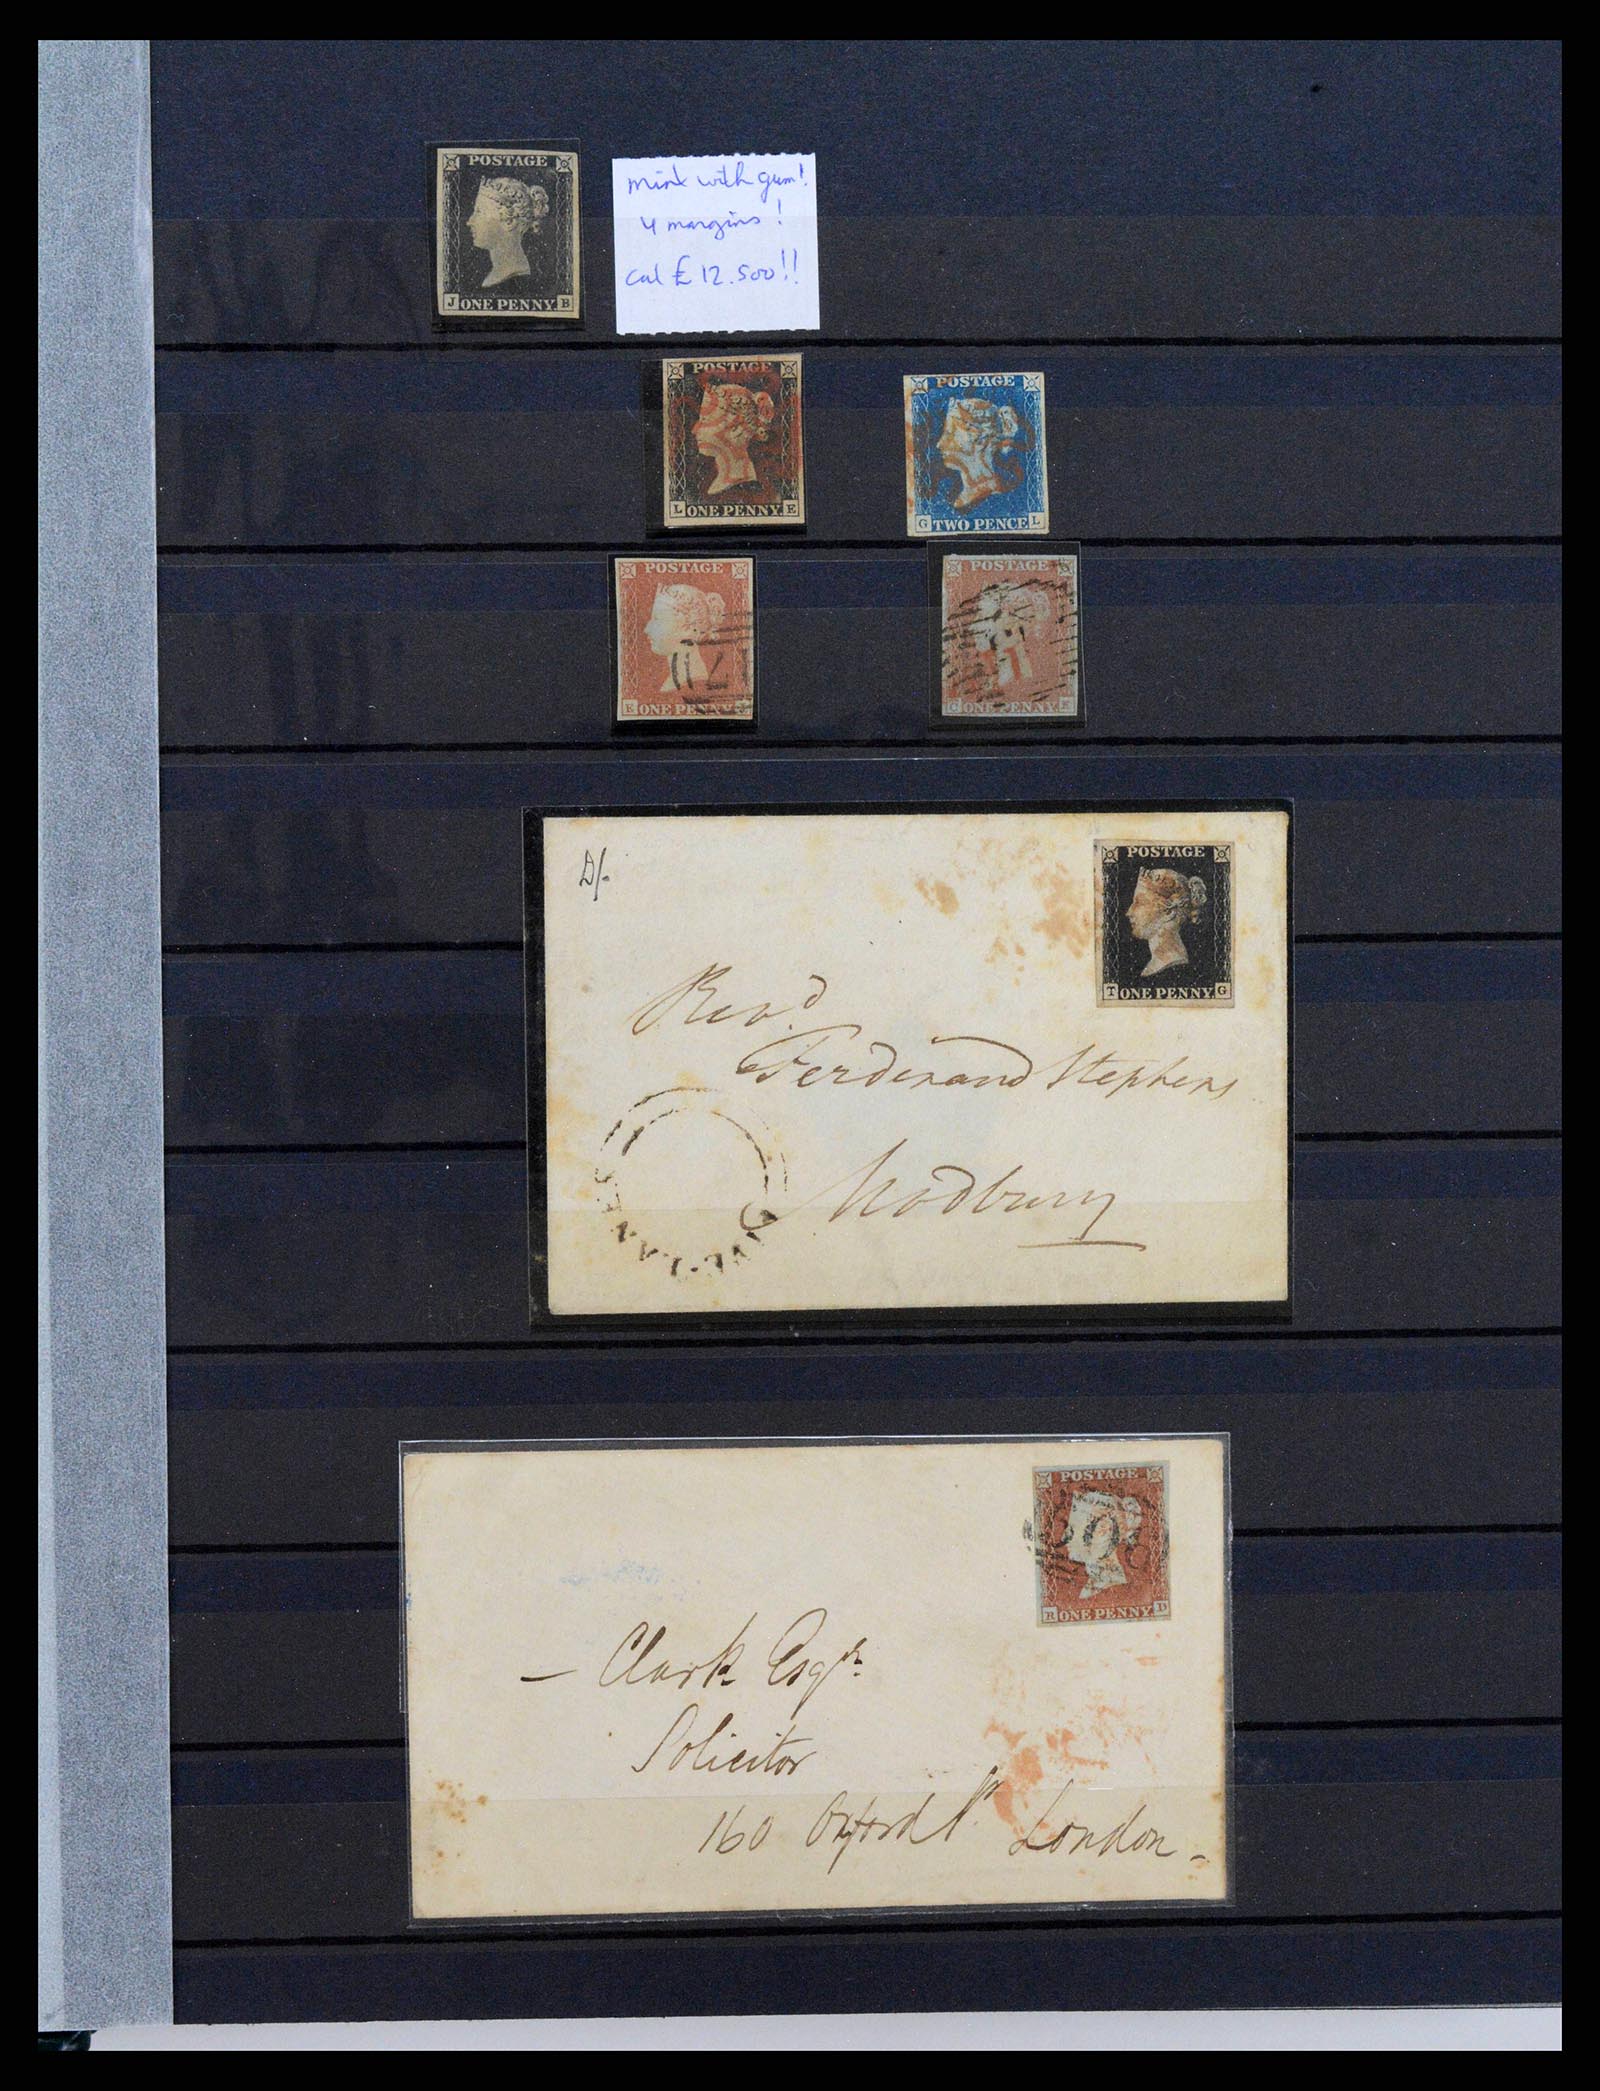 POSTAGE
J ONE PENNY B
mint with gum!
4 margins!
cat £ 12.500!!
POSTAGE
L ONE PENNY E
POSTAGE
G TWO PENCE L
POSTAGE
E ONE PENNY
POSTAGE
C ONE PENNY E
POSTAGE
T ONE PENNY G
Revd.
Ferdinand Stephens
Modbury
POSTAGE
R ONE PENNY D
– Clark Esqr.
Solicitor
160 Oxford St. London –